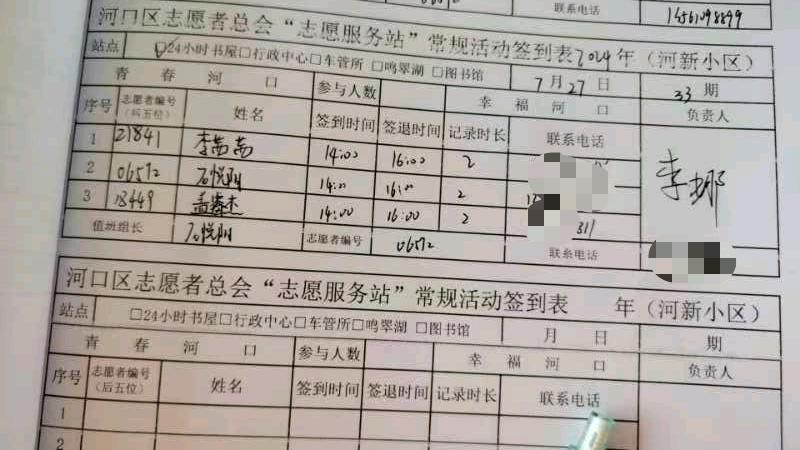 联系电话 14561098899
河口区志愿者总会“志愿服务站”常规活动签到表2024年（河新小区）
站点 ☑24小时书屋□行政中心□车管所 □鸣翠湖 □图书馆 7月27日 33期
青春河口 参与人数 幸福河口 负责人
序号 志愿者编号（后五位） 姓名 签到时间 签退时间 记录时长 联系电话
1 21841 李茜茜 14:00 16:00 2
2 06572 石悦阳 14:00 16:00 2
3 18449 孟春杰 14:00 16:00 2 311
李娜
值班组长 石悦阳 志愿者编号 06572 联系电话
河口区志愿者总会“志愿服务站”常规活动签到表 年（河新小区）
站点 □24小时书屋□行政中心□车管所□鸣翠湖 □图书馆 月 日 期
青春河口 参与人数 幸福河口 负责人
序号 志愿者编号（后五位） 姓名 签到时间 签退时间 记录时长 联系电话
1
2